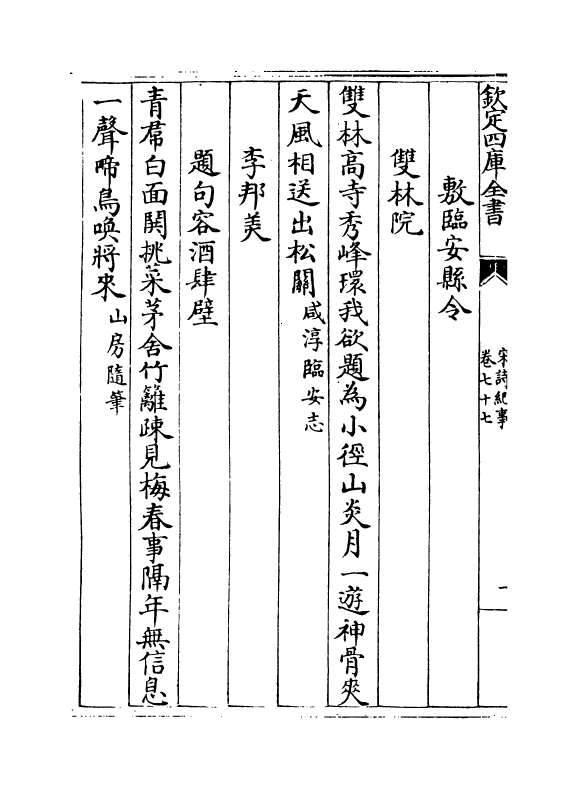 欽定四庫全書
宋詩紀事
卷七十七
一
敷臨安縣令
雙林院
雙林高寺秀峰環我欲題為小徑山炎月一遊神骨爽
天風相送出松關咸淳臨安志
李邦美
題句容酒肆壁
青帬白面閧挑菜茅舍竹籬疎見梅春事隔年無信息
一聲啼鳥喚將來山房隨筆